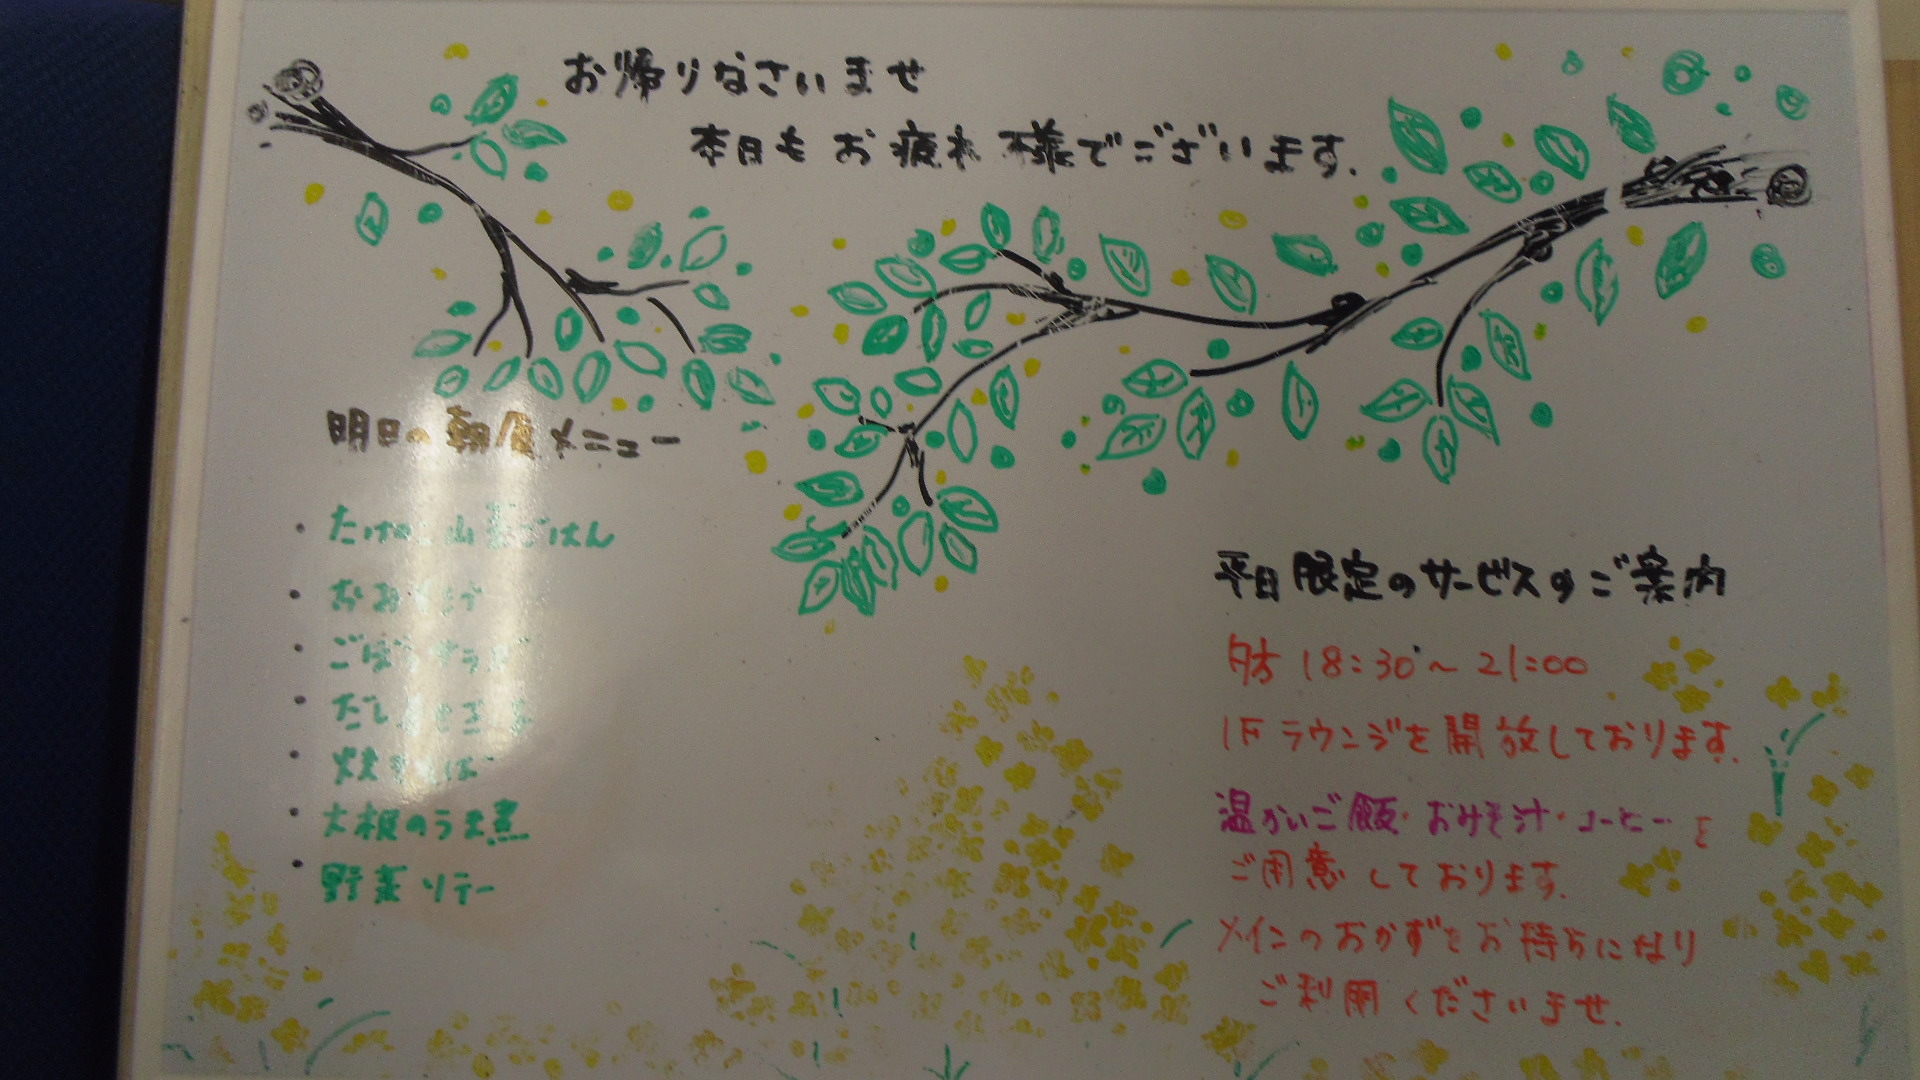 お帰りなさいませ
本日もお疲れ様でございます.
明日の朝食メニュー
・たけのこ山菜ごはん
・おみそ汁
・ごぼうサラダ
・だし巻き玉子
・焼きそば
・大根のうま煮
・野菜ソテー
平日限定のサービスのご案内
夕方 18:30～21:00
1Fラウンジを開放しております.
温かいご飯・おみそ汁・コーヒーを
ご用意しております.
メインのおかずをお持ちになり
ご利用くださいませ.